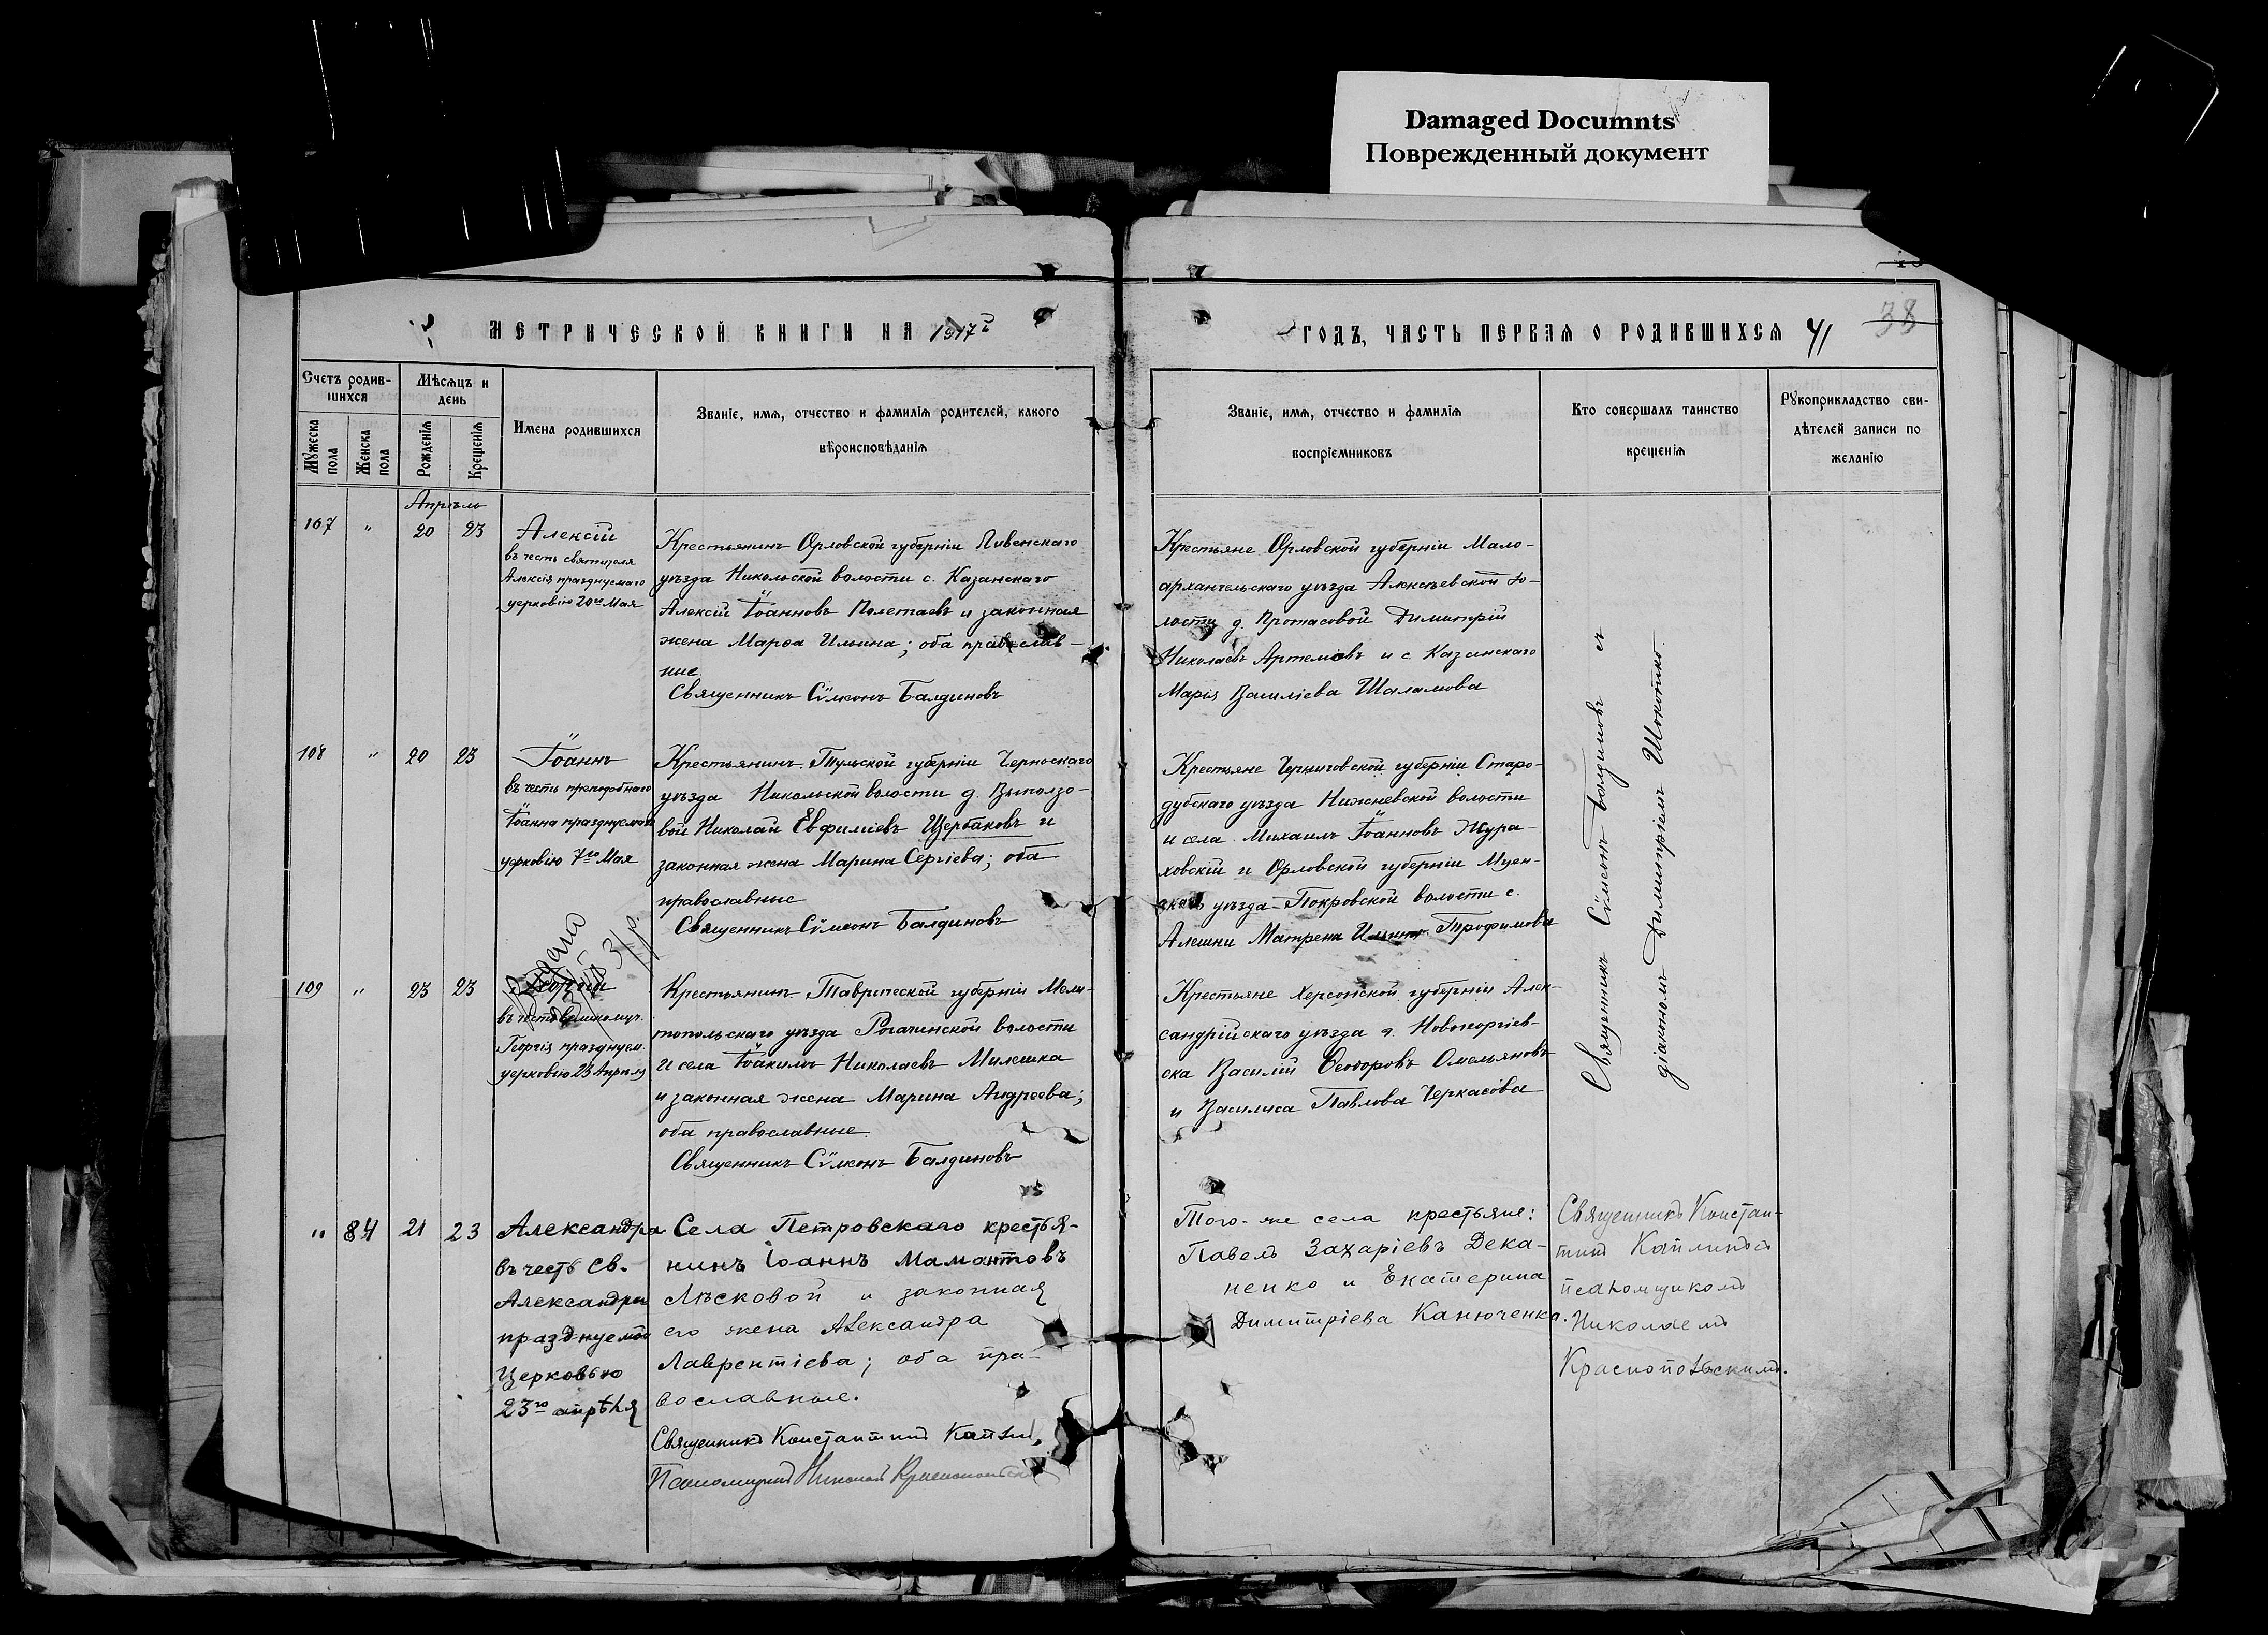 Damaged Documnts
Поврежденный документ
МЕТРИЧЕСКОЙ КНИГИ НА 1917
ГОДЪ, ЧАСТЬ ПЕРВАЯ О РОДИВШИХСЯ 41
38
Счетъ родив-
шихся
Мѣсяцъ и
день
Мужеска
пола
Женска
пола
Рожденія
Крещенія
Имена родившихся
Званіе, имя, отчество и фамилія родителей, какого
вѣроисповѣданія
Званіе, имя, отчество и фамилія
воспріемниковъ
Кто совершалъ таинство
крещенія
Рукоприкладство сви-
дѣтелей записи по
желанію
Апрѣль
107 " 20 23
Алексій
въ честь святителя
Алексія празднуемаго
церковію 20го Мая
Крестьянинъ Орловской губерніи Ливенскаго
уѣзда Никольской волости с. Казанскаго
Алексій Іоанновъ Полетаевъ и законная
жена Марѳа Ильина; оба православ-
ные
Священникъ Сѵмеонъ Балдиновъ
Крестьяне Орловской губерніи Мало-
архангельскаго уѣзда Алексѣевской во-
лости д. Протасовой Димитрій
Николаевъ Артемовъ и с. Казанскаго
Марія Василіева Шаламова
108 " 20 23
Іоаннъ
въ честь преподобнаго
Іоанна празднуемаго
церковію 7го Мая
Крестьянинъ Тульской губерніи Чернскаго
уѣзда Никольской волости д. Выползо-
вой Николай Евфиміевъ Щербаковъ и
законная жена Марина Сергіева; оба
православные
Священникъ Сѵмеонъ Балдиновъ
Крестьяне Черниговской губерніи Старо-
дубскаго уѣзда Нижневской волости
и села Михаилъ Іоанновъ Жура-
ховскій и Орловской губерніи Мцен-
скаго уѣзда Покровской волости с.
Алешни Матрена Трофимова
109 " 23 23
Выдана
Георгій
въ честь великомуч.
Георгія празднуем.
церковію 23 Апрѣля
Крестьянинъ Таврической губерніи Мели-
топольскаго уѣзда Рогачинской волости
и села Іоакимъ Николаевъ Милешка
и законная жена Марина Андреева;
оба православные.
Священникъ Сѵмеонъ Балдиновъ
Крестьяне Херсонской губерніи Алек-
сандрійскаго уѣзда г. Новогеоргіев-
ска Василій Ѳеодоровъ Омельяновъ
и Василиса Павлова Черкасова
Священникъ Сѵмеонъ Балдиновъ съ
діакономъ Димитріемъ Шокотько.
" 84 21 23
Александра
въ честь св.
Александры
празднуемой
Церковью
23го апрѣля
Села Петровскаго крестья-
нинъ Іоаннъ Мамонтовъ
Лѣсковой и законная
его жена Александра
Лаврентіева; оба пра-
вославные.
Священникъ Константинъ
Псаломщикъ Николай
Того-же села крестьяне:
Павелъ Захаріевъ Дека-
ненко и Екатерина
Димитріева Канюченко.
Священникъ Констан-
тинъ съ
псаломщикомъ
Николаемъ
Краснопольскимъ.